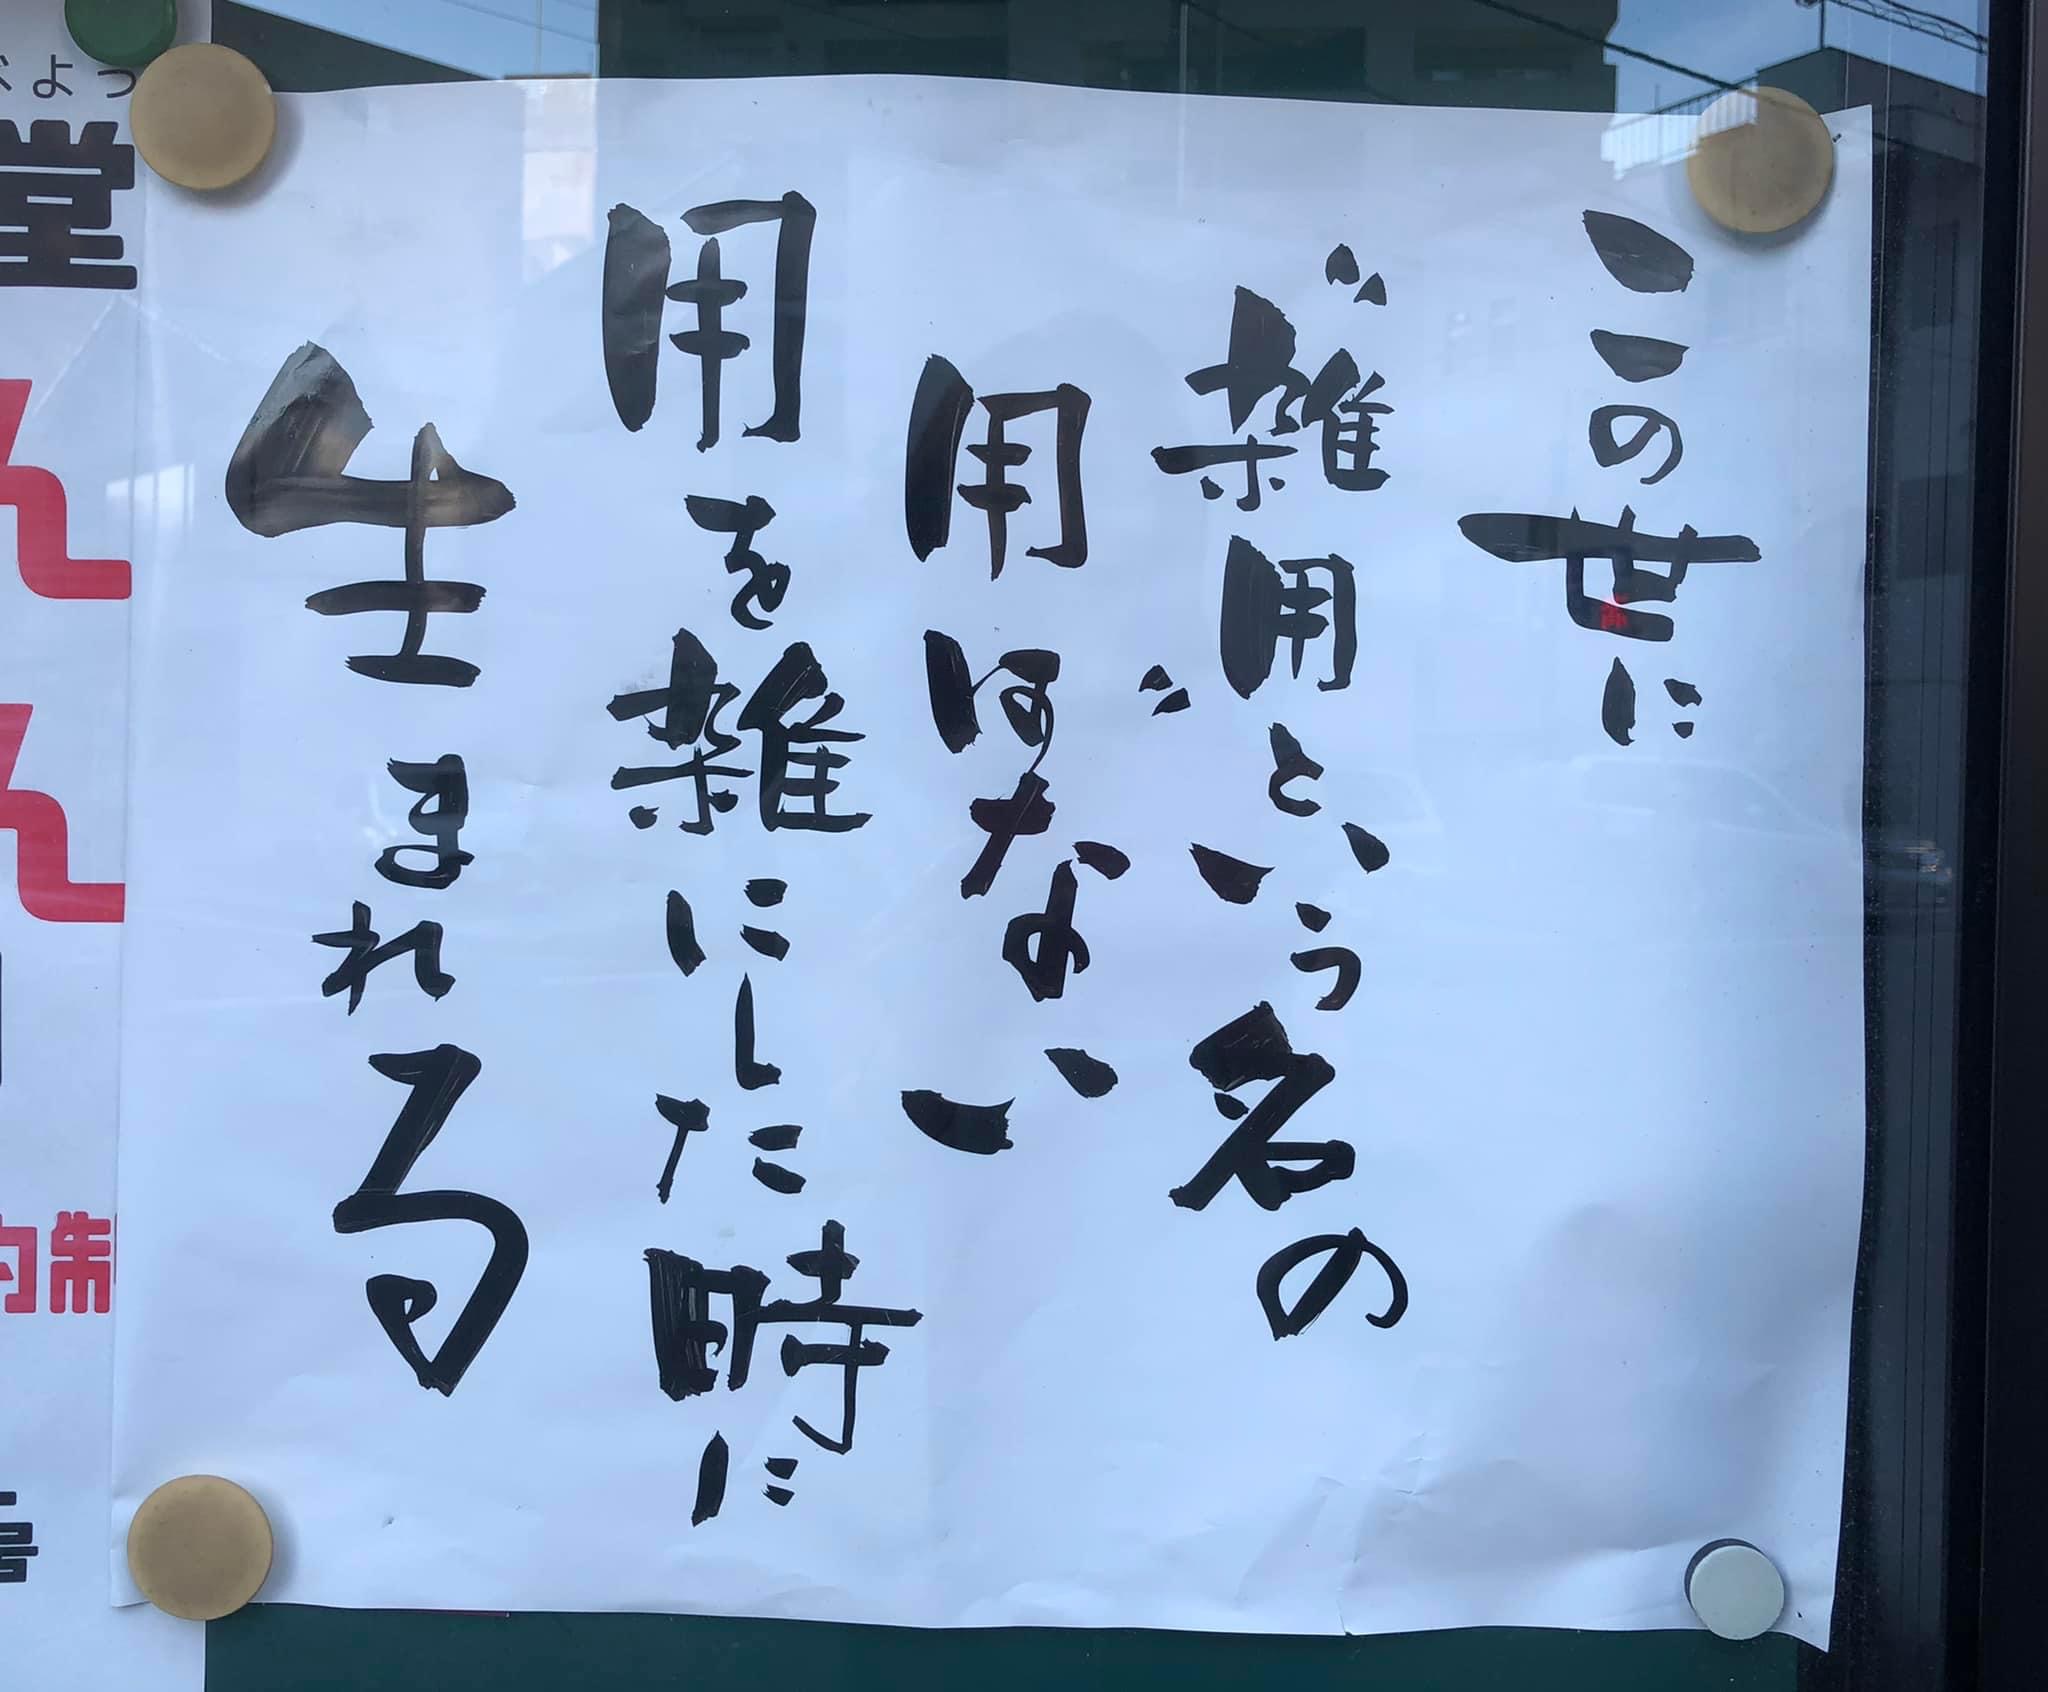 この世に
〝雑用〟という名の
用はない
用を雑にした時に
生まれる
よっ
堂